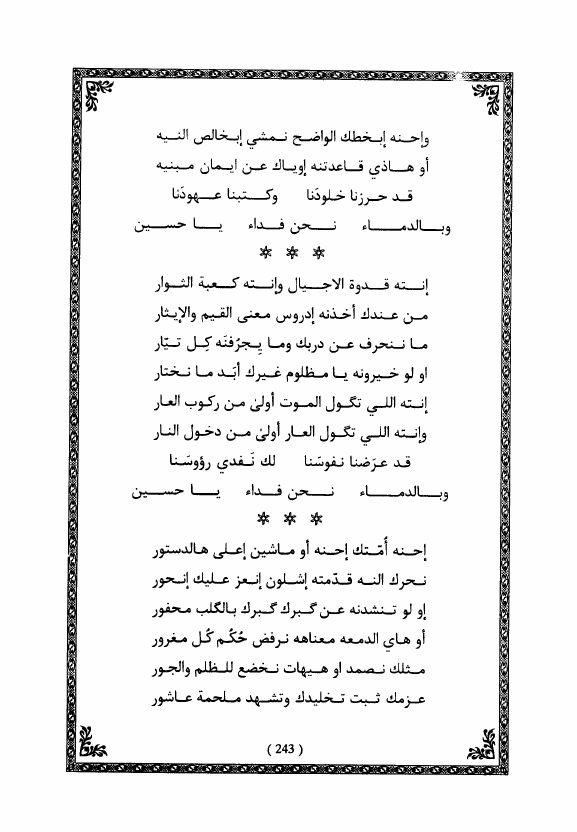 واحنه إبخطك الواضح نمشي إبخالص النيه
أو هاذي قاعدتنه إوياك عن ايمان مبنيه
قد حرزنا خلودَنا وكتبنا عهودَنا
وبالدماء نحن فداء يا حسين
* * *
إنته قدوة الاجيال وإنته كعبة الثوار
من عندك أخذنه إدروس معنى القيم والإيثار
ما ننحرف عن دربك وما يِجرُفنَه كِل تيّار
او لو خيرونه يا مظلوم غيرك أبَد ما نختار
إنته اللي تگول الموت أولىٰ من ركوب العار
وإنته اللي تگول العار أولىٰ من دخول النار
قد عرَضنا نفوسَنا لك نَفدي رؤوسَنا
وبالدماء نحن فداء يا حسين
* * *
إحنه أُمّتك إحنه أو ماشين إعلى هالدستور
نحرك النه قدّمته إشلون إنعز عليك إنحور
إو لو تنشدنه عن گبرك گبرك بالگلب محفور
أو هاي الدمعه معناهه نرفض حُكُم كُل مغرور
مثلك نصمد او هيهات نخضع للظلم والجور
عزمك ثبت تخليدك وتشهد ملحمة عاشور
( 243 )